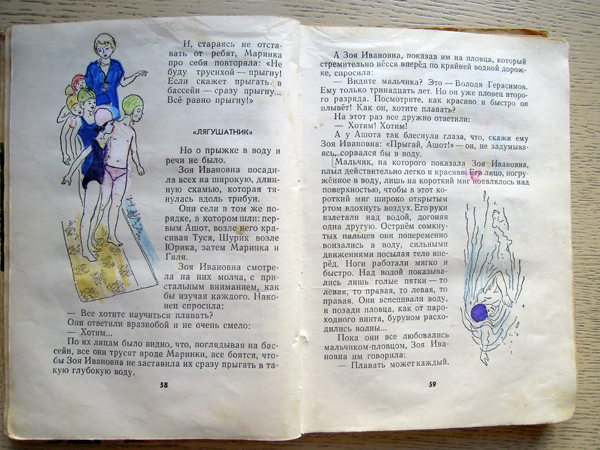 И, стараясь не отста-
вать от ребят, Маринка
про себя повторяла: «Не
буду трусихой — прыгну!
Если скажет прыгать в
бассейн — сразу прыгну...
Всё равно прыгну!»
«ЛЯГУШАТНИК»
Но о прыжке в воду и
речи не было.
Зоя Ивановна посади-
ла всех на широкую, длин-
ную скамью, которая тя-
нулась вдоль трибун.
Они сели в том же по-
рядке, в котором шли: пер-
вым Ашот, возле него кра-
сивая Туся, Шурик возле
Юрика, затем Маринка и
Галя.
Зоя Ивановна смотре-
ла на них молча, с при-
стальным вниманием, как
бы изучая каждого. Нако-
нец спросила:
— Все хотите научиться плавать?
Они ответили вразнобой и не очень смело:
— Хотим...
По их лицам было видно, что, поглядывая на бас-
сейн, все они трусят вроде Маринки, все боятся, что-
бы Зоя Ивановна не заставила их сразу прыгать в та-
кую глубокую воду.
58
А Зоя Ивановна, показав им на пловца, который
стремительно нёсся вперёд по крайней водной дорож-
ке, спросила:
— Видите мальчика? Это — Володя Герасимов.
Ему только тринадцать лет. Но он уже пловец второ-
го разряда. Посмотрите, как красиво и быстро он
плывёт! Как он, хотите плавать?
На этот раз все дружно ответили:
— Хотим! Хотим!
А у Ашота так блеснули глаза, что, скажи ему
Зоя Ивановна: «Прыгай, Ашот!» — он, не задумыва-
ясь, сорвался бы в воду.
Мальчик, на которого показала Зоя Ивановна,
плыл действительно легко и красиво. Его лицо, погру-
жённое в воду, лишь на короткий миг появлялось над
поверхностью, чтобы в этот ко-
роткий миг широко открытым
ртом вдохнуть воздух. Его руки
взлетали над водой, догоняя
одна другую. Остриём сомкну-
тых пальцев они попеременно
вонзались в воду, сильными
движениями посылая тело впе-
рёд. Ноги работали мягко и
быстро. Над водой показыва-
лись лишь голые пятки — то
левая, то правая, то левая, то
правая. Они вспенивали воду,
и позади пловца, как от па-
роходного винта, буруном расхо-
дились волны...
Пока они все любовались
мальчиком-пловцом, Зоя Ива-
новна им говорила:
— Плавать может каждый.
59